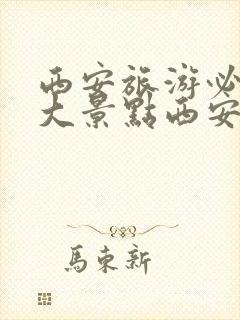 西安旅游必
大景點西安
馬東新